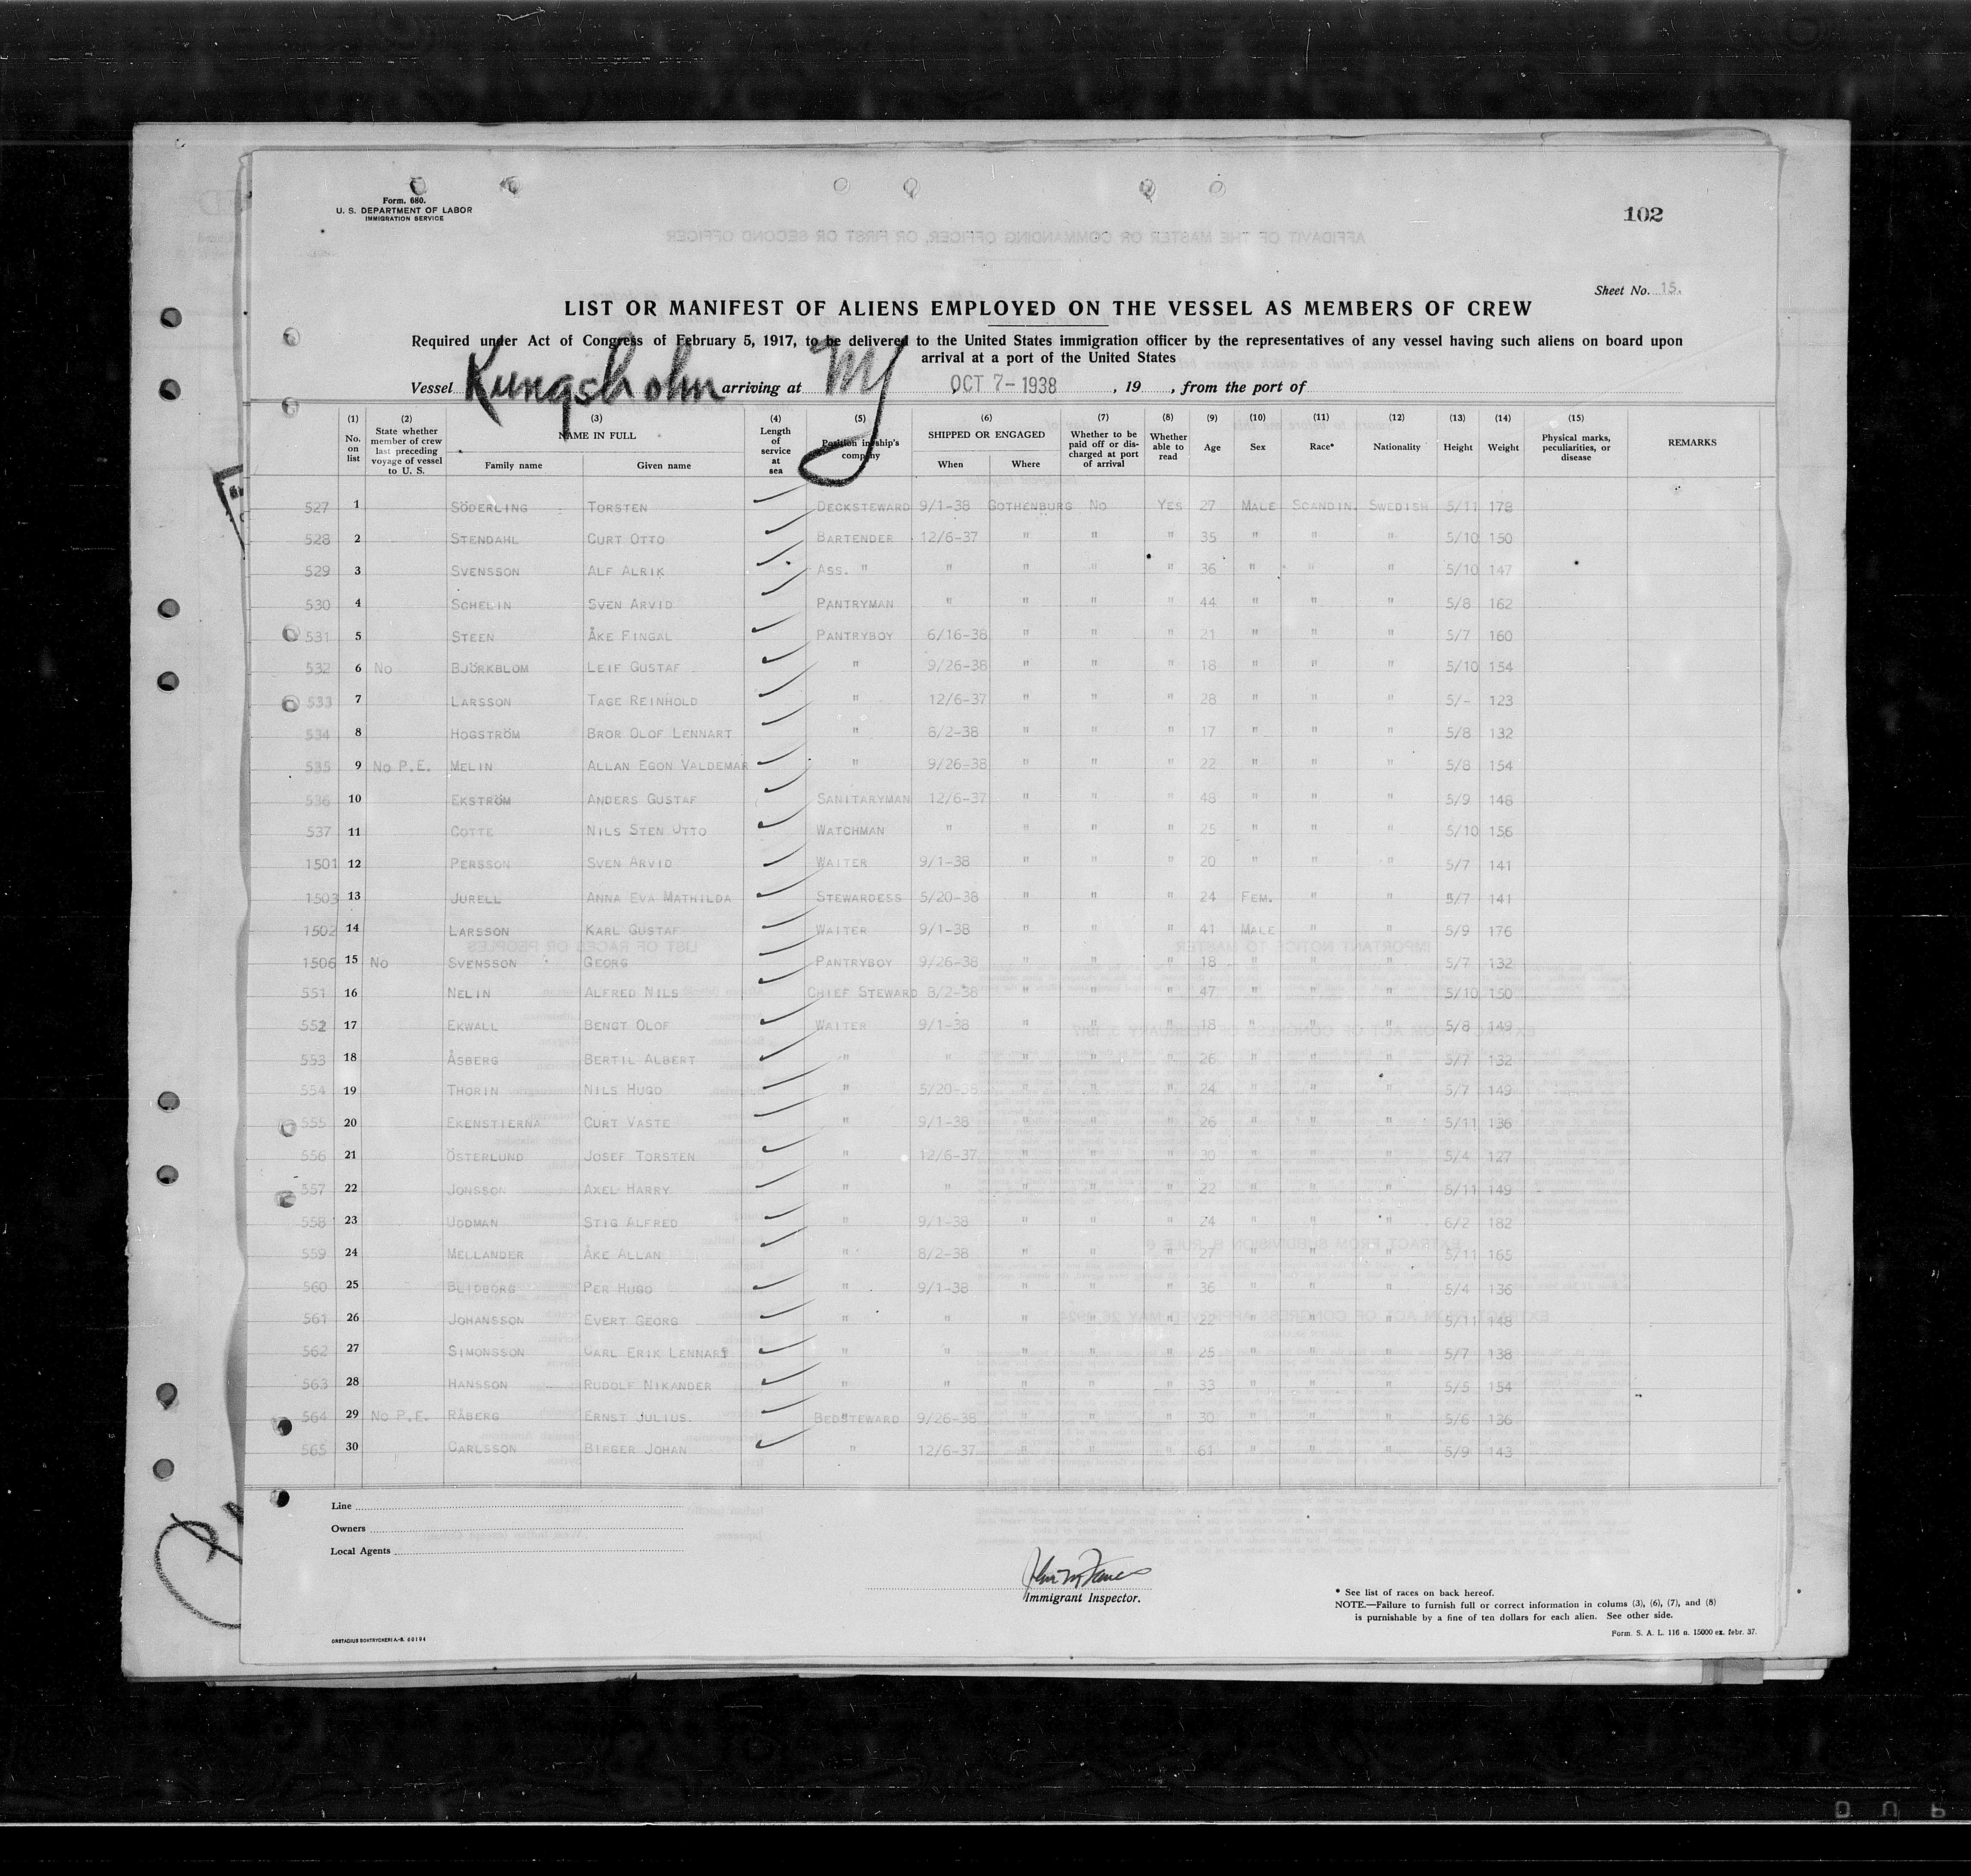 Form. 680.
U. S. DEPARTMENT OF LABOR
IMMIGRATION SERVICE
102
Sheet No. 15.
LIST OR MANIFEST OF ALIENS EMPLOYED ON THE VESSEL AS MEMBERS OF CREW
Required under Act of Congress of February 5, 1917, to be delivered to the United States immigration officer by the representatives of any vessel having such aliens on board upon
arrival at a port of the United States
Vessel Kungsholm arriving at NY OCT 7-1938 , 19 , from the port of
(1) No. on list (2) State whether member of crew last preceding voyage of vessel to U. S. (3) NAME IN FULL Family name Given name (4) Length of service at sea (5) Position in ship's company (6) SHIPPED OR ENGAGED When Where (7) Whether to be paid off or discharged at port of arrival (8) Whether able to read (9) Age (10) Sex (11) Race* (12) Nationality (13) Height (14) Weight (15) Physical marks, peculiarities, or disease REMARKS
527 1 SÖDERLING TORSTEN DECKSTEWARD 9/1-38 GOTHENBURG NO YES 27 MALE SCANDIN. SWEDISH 5/11 178
528 2 STENDAHL CURT OTTO BARTENDER 12/6-37 " " " 35 " " " 5/10 150
529 3 SVENSSON ALF ALRIK ASS. " " " " " 36 " " " 5/10 147
530 4 SCHELIN SVEN ARVID PANTRYMAN " " " " 44 " " " 5/8 162
531 5 STEEN ÅKE FINGAL PANTRYBOY 6/16-38 " " " 21 " " " 5/7 160
532 6 NO BJÖRKBLOM LEIF GUSTAF " 9/26-38 " " " 18 " " " 5/10 154
533 7 LARSSON TAGE REINHOLD " 12/6-37 " " " 28 " " " 5/- 123
534 8 HOGSTRÖM BROR OLOF LENNART " 8/2-38 " " " 17 " " " 5/8 132
535 9 NO P.E. MELIN ALLAN EGON VALDEMAR " 9/26-38 " " " 22 " " " 5/8 154
536 10 EKSTRÖM ANDERS GUSTAF SANITARYMAN 12/6-37 " " " 48 " " " 5/9 148
537 11 COTTE NILS STEN OTTO WATCHMAN " " " " 25 " " " 5/10 156
1501 12 PERSSON SVEN ARVID WAITER 9/1-38 " " " 20 " " " 5/7 141
1503 13 JURELL ANNA EVA MATHILDA STEWARDESS 5/20-38 " " " 24 FEM. " " 5/7 141
1502 14 LARSSON KARL GUSTAF WAITER 9/1-38 " " " 41 MALE " " 5/9 176
1506 15 NO SVENSSON GEORG PANTRYBOY 9/26-38 " " " 18 " " " 5/7 132
551 16 NELIN ALFRED NILS CHIEF STEWARD 8/2-38 " " " 47 " " " 5/10 150
552 17 EKWALL BENGT OLOF WAITER 9/1-38 " " " 18 " " " 5/8 149
553 18 ÅSBERG BERTIL ALBERT " " " " " 26 " " " 5/7 132
554 19 THORIN NILS HUGO " 5/20-38 " " " 24 " " " 5/7 149
555 20 EKENSTIERNA CURT VASTE " 9/1-38 " " " 26 " " " 5/11 136
556 21 ÖSTERLUND JOSEF TORSTEN " 12/6-37 " " " 30 " " " 5/4 127
557 22 JONSSON AXEL HARRY " " " " " 22 " " " 5/11 149
558 23 UDDMAN STIG ALFRED " 9/1-38 " " " 24 " " " 6/2 182
559 24 MELLANDER ÅKE ALLAN " 8/2-38 " " " 27 " " " 5/11 165
560 25 BLIDBORG PER HUGO " 9/1-38 " " " 36 " " " 5/4 136
561 26 JOHANSSON EVERT GEORG " " " " " 22 " " " 5/11 148
562 27 SIMONSSON CARL ERIK LENNART " " " " " 25 " " " 5/7 138
563 28 HANSSON RUDOLF NIKANDER " " " " " 33 " " " 5/5 154
564 29 NO P.E. RÅBERG ERNST JULIUS BEDSTEWARD 9/26-38 " " " 30 " " " 5/6 136
565 30 CARLSSON BIRGER JOHAN " 12/6-37 " " " 61 " " " 5/9 143
Line
Owners
Local Agents
Immigrant Inspector.
* See list of races on back hereof.
NOTE.—Failure to furnish full or correct information in colums (3), (6), (7), and (8)
is purnishable by a fine of ten dollars for each alien. See other side.
ORSTADIUS BOKTRYCKERI A.-B. 60194
Form. S. A. L. 116 n. 15000 ex. febr. 37.